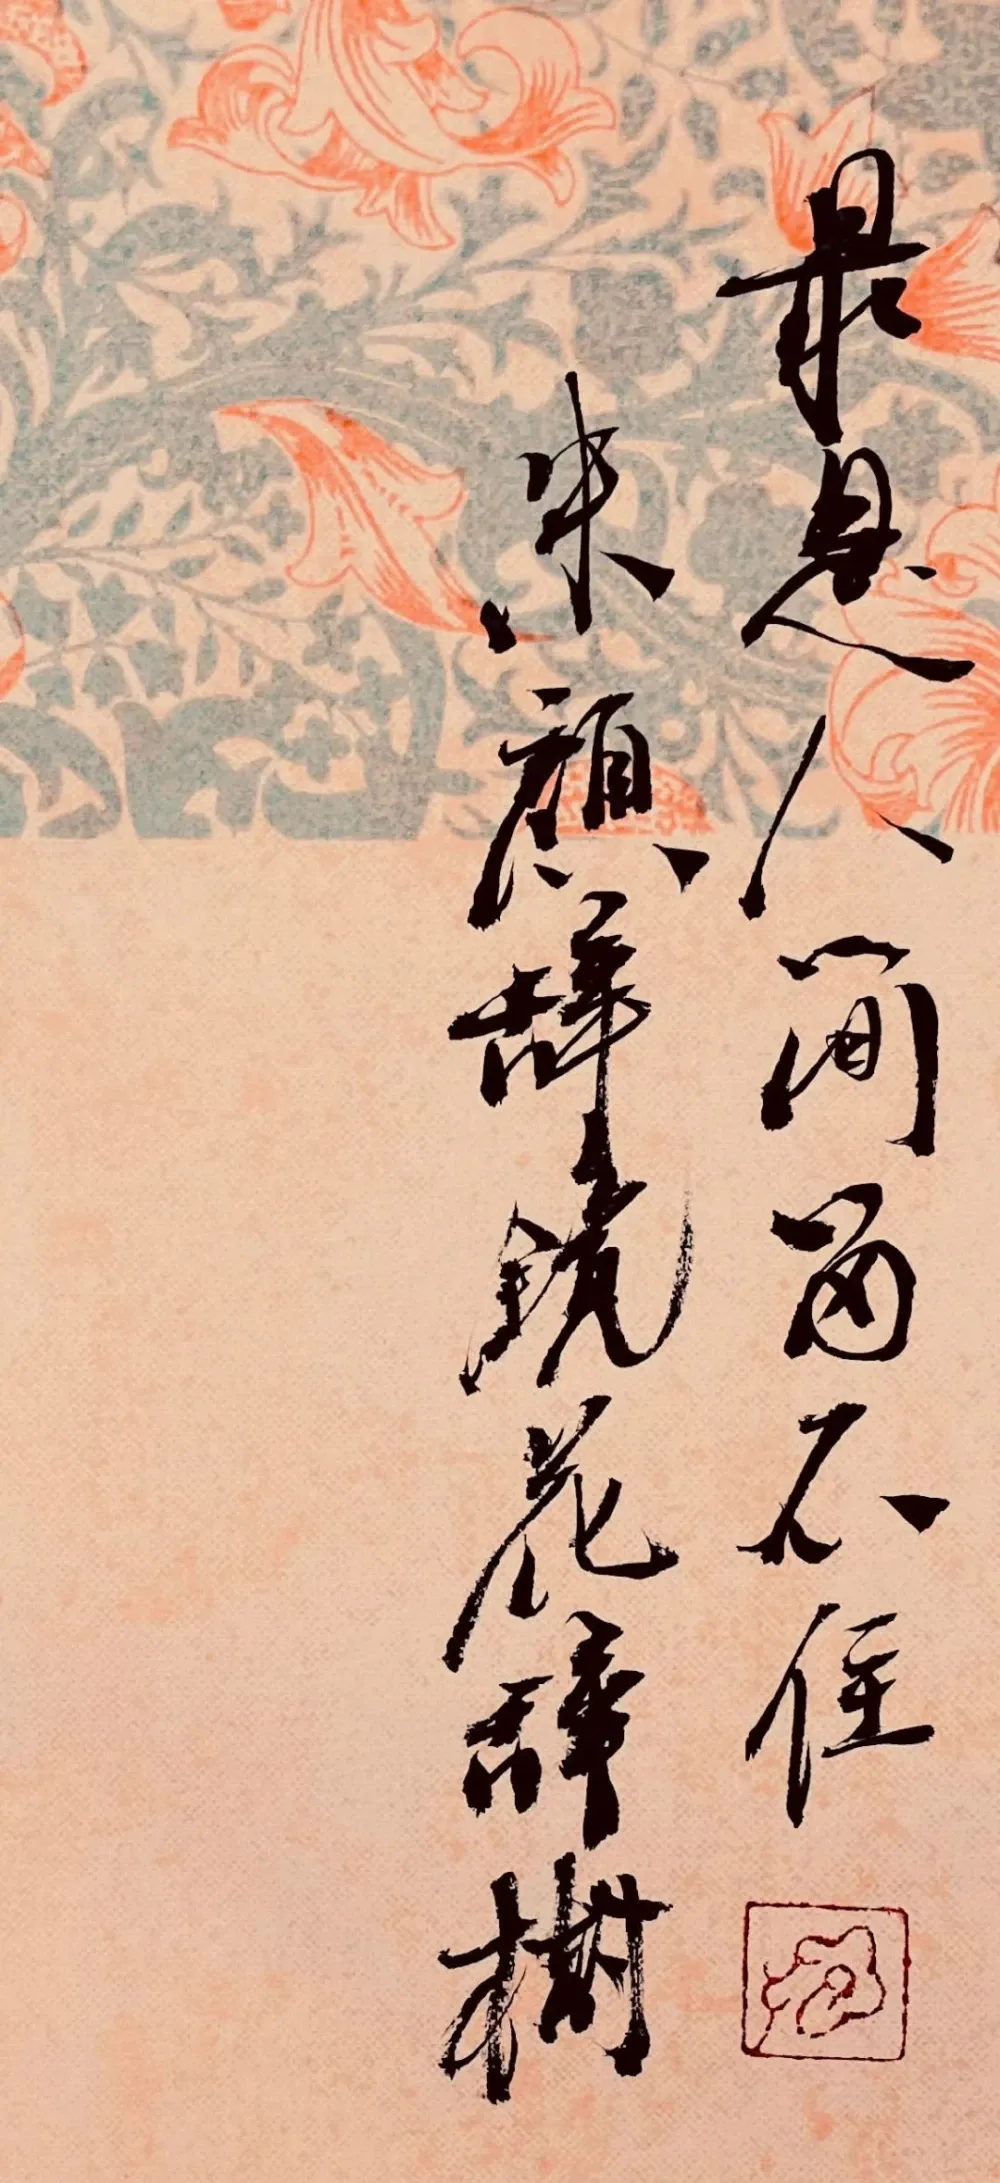 最是人间留不住
朱颜辞镜花辞樹